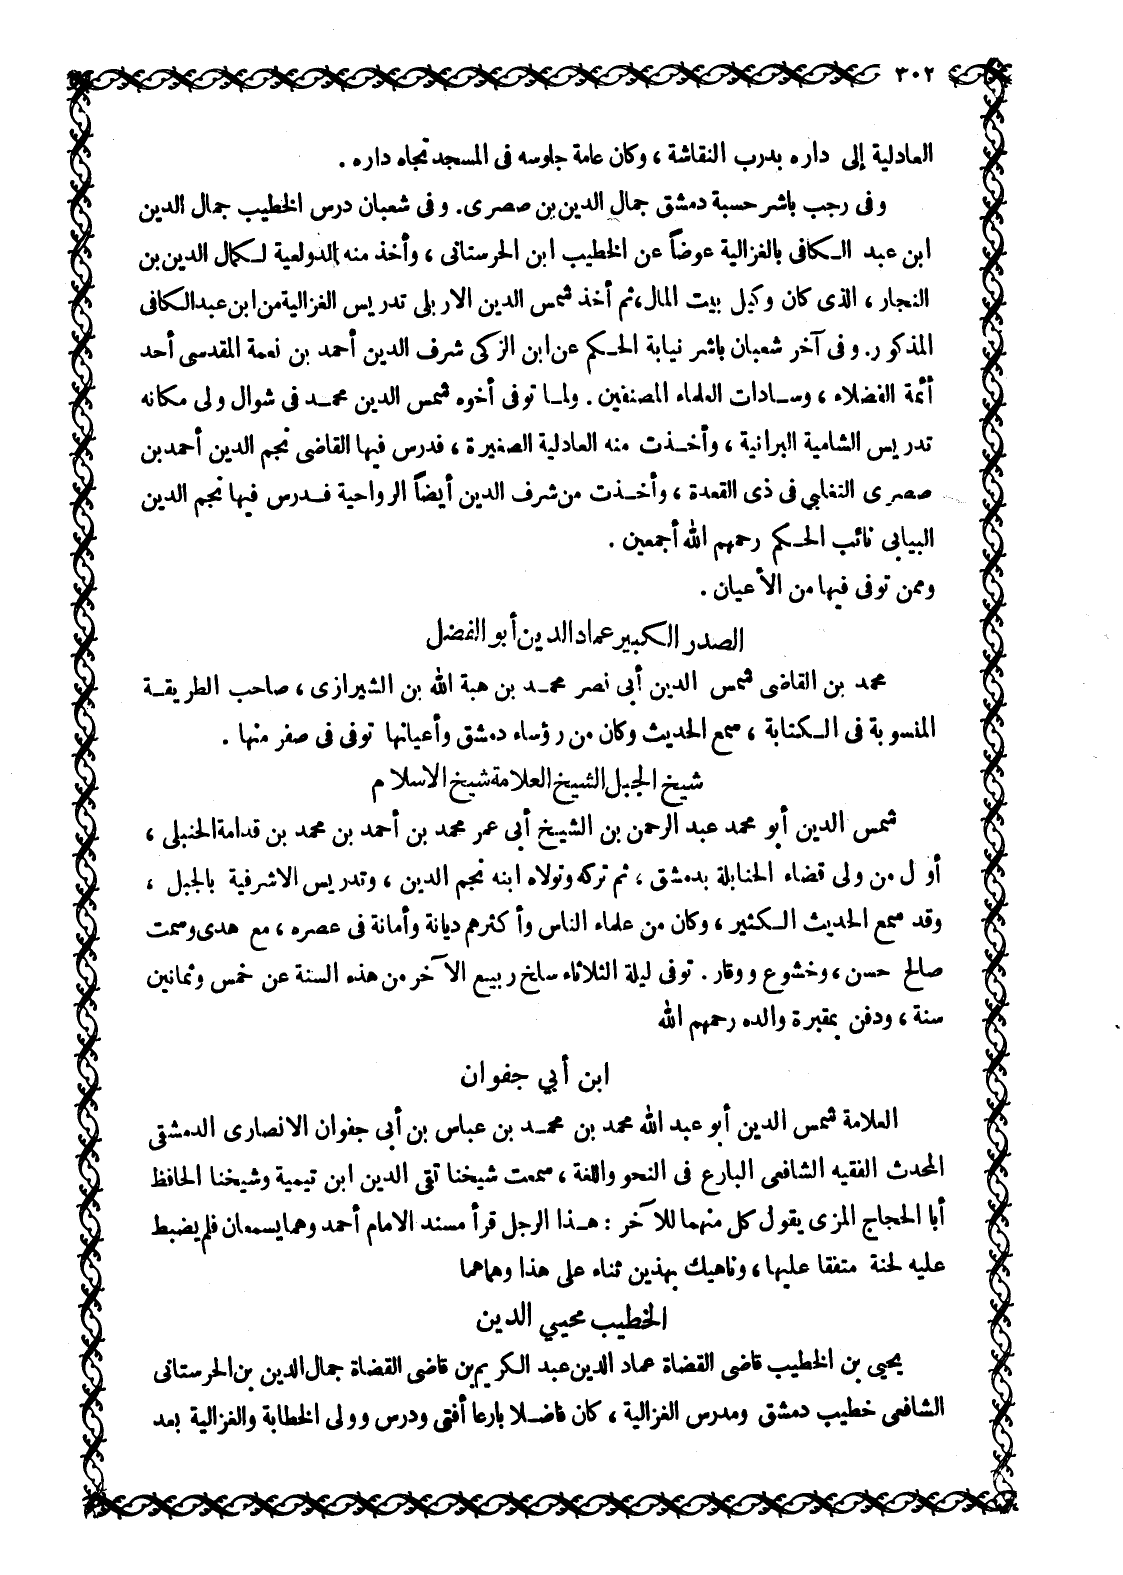 ٣٠٢
العادلية إلى داره بدرب النقاشة ، وكان عامة جلوسه فى المسجد تجاه داره .
وفى رجب باشر حسبة دمشق جمال الدين بن صصرى. وفى شعبان درس الخطيب جمال الدين
ابن عبد الكافى بالغزالية عوضاً عن الخطيب ابن الحرستانى ، وأخذ منه الدولعية لكمال الدين بن
النجار ، الذى كان وكيل بيت المال، ثم أخذ شمس الدين الاربلى تدريس الغزالية من ابن عبد الكافى
المذكور. وفى آخر شعبان باشر نيابة الحكم عن ابن الزكى شرف الدين أحمد بن نعمة المقدسى أحد
أئمة الفضلاء ، وسادات العلماء المصنفين . ولما توفى أخوه شمس الدين محمد فى شوال ولى مكانه
تدريس الشامية البرانية ، وأخذت منه العادلية الصغيرة ، فدرس فيها القاضى نجم الدين أحمد بن
صصرى التغلبي فى ذى القعدة ، وأخذت من شرف الدين أيضاً الرواحية فدرس فيها نجم الدين
البيابى نائب الحكم رحمهم الله أجمعين .
وممن توفى فيها من الأعيان .
الصدر الكبير عماد الدين أبو الفضل
محمد بن القاضى شمس الدين أبى نصر محمد بن هبة الله بن الشيرازى ، صاحب الطريقة
المنسوبة فى الكتابة ، سمع الحديث وكان من رؤساء دمشق وأعيانها توفى فى صفر منها .
شيخ الجبل الشيخ العلامة شيخ الاسلام
شمس الدين أبو محمد عبد الرحمن بن الشيخ أبى عمر محمد بن أحمد بن محمد بن قدامة الحنبلى ،
أول من ولى قضاء الحنابلة بدمشق ، ثم تركه وتولاه ابنه نجم الدين ، وتدريس الاشرفية بالجبل ،
وقد سمع الحديث الكثير ، وكان من علماء الناس وأكثرهم ديانة وأمانة فى عصره ، مع هدى وسمت
صالح حسن ، وخشوع ووقار . توفى ليلة الثلاثاء سلخ ربيع الآخر من هذه السنة عن خمس وثمانين
سنة ، ودفن بمقبرة والده رحمهم الله
ابن أبي جفوان
العلامة شمس الدين أبو عبد الله محمد بن محمد بن عباس بن أبى جفوان الانصارى الدمشقى
المحدث الفقيه الشافعى البارع فى النحو واللغة ، سمعت شيخنا تقى الدين ابن تيمية وشيخنا الحافظ
أبا الحجاج المزى يقول كل منهما للآخر : هذا الرجل قرأ مسند الامام أحمد وهما يسمعان فلم يضبط
عليه لحنة متفقا عليها ، وناهيك بهذين ثناء على هذا وهماهما
الخطيب محيي الدين
يحيى بن الخطيب قاضى القضاة عماد الدين عبد الكريم بن قاضى القضاة جمال الدين بن الحرستانى
الشافعى خطيب دمشق ومدرس الغزالية ، كان فاضلا بارعا أفتى ودرس وولى الخطابة والغزالية بعد